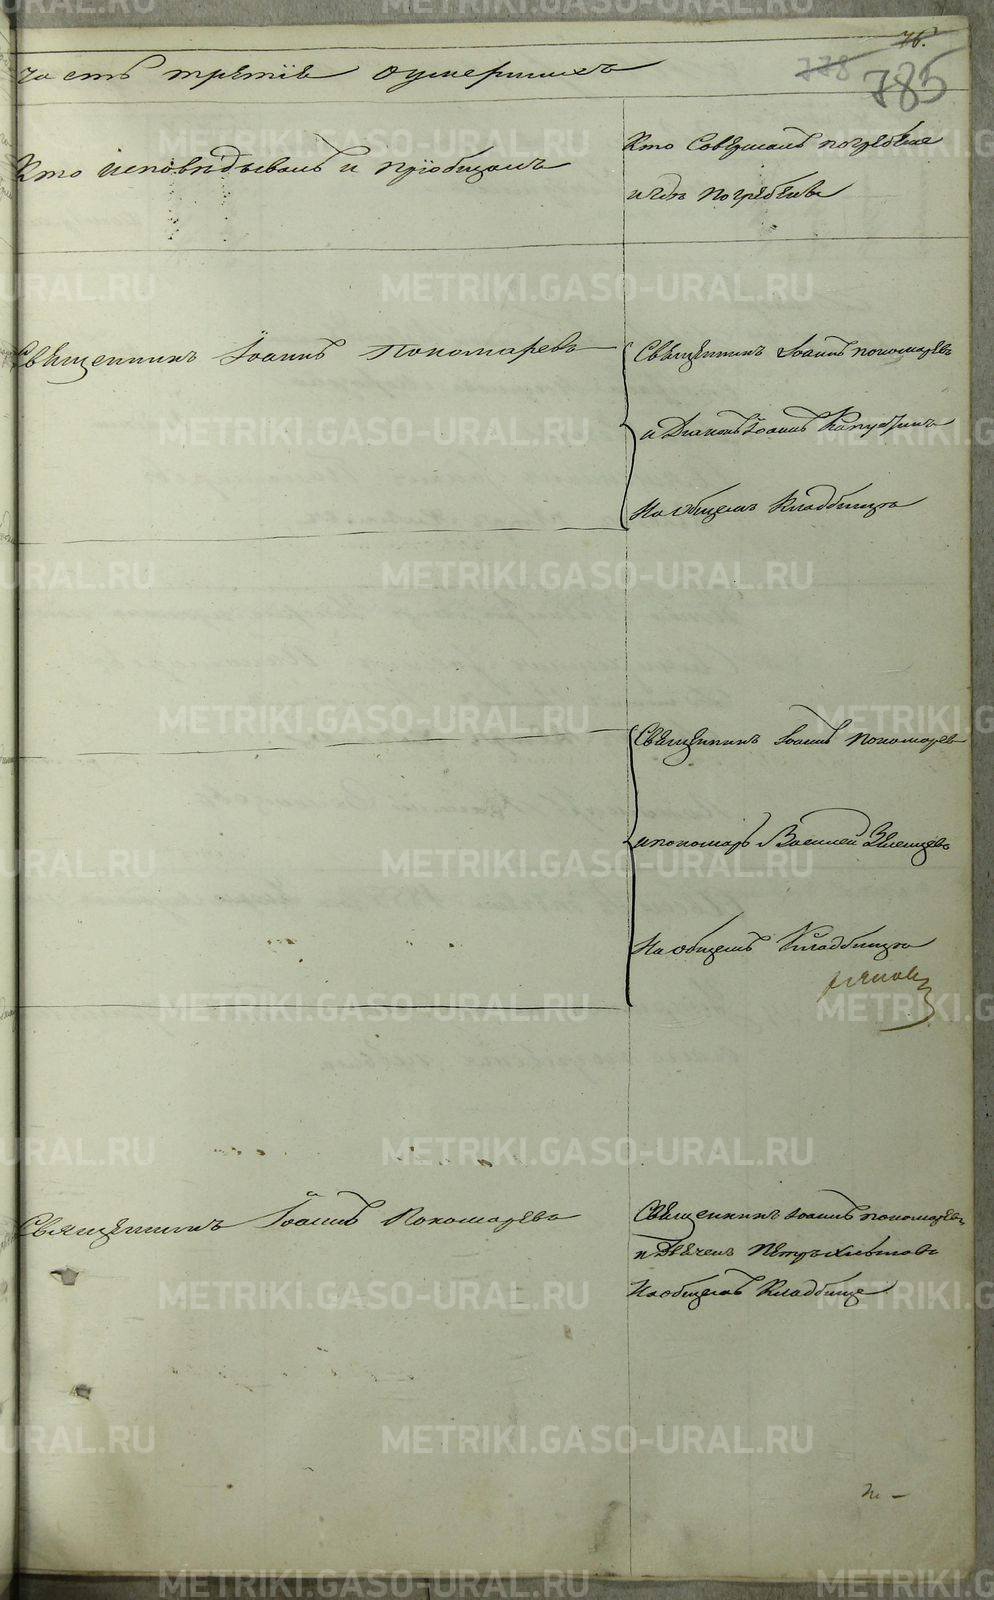 76.
778 785
часть третiѣ о умершихъ
Кто исповѣдывалъ и прiобщалъ
Кто Совершалъ погребѣнiе
и гдѣ погребѣны
Священникъ Iоаннъ Пономаревъ
Священникъ Iоаннъ пономаревъ
и Дiаконъ Iоаннъ
На общемъ Кладбищѣ
Священникъ Iоаннъ пономаревъ
и пономарь Василей
На общемъ Кладбищѣ
Священникъ Iоаннъ Пономаревъ
Священникъ Iоаннъ пономаревъ
и Дьячекъ Петръ
На общемъ Кладбище
METRIKI.GASO-URAL.RU